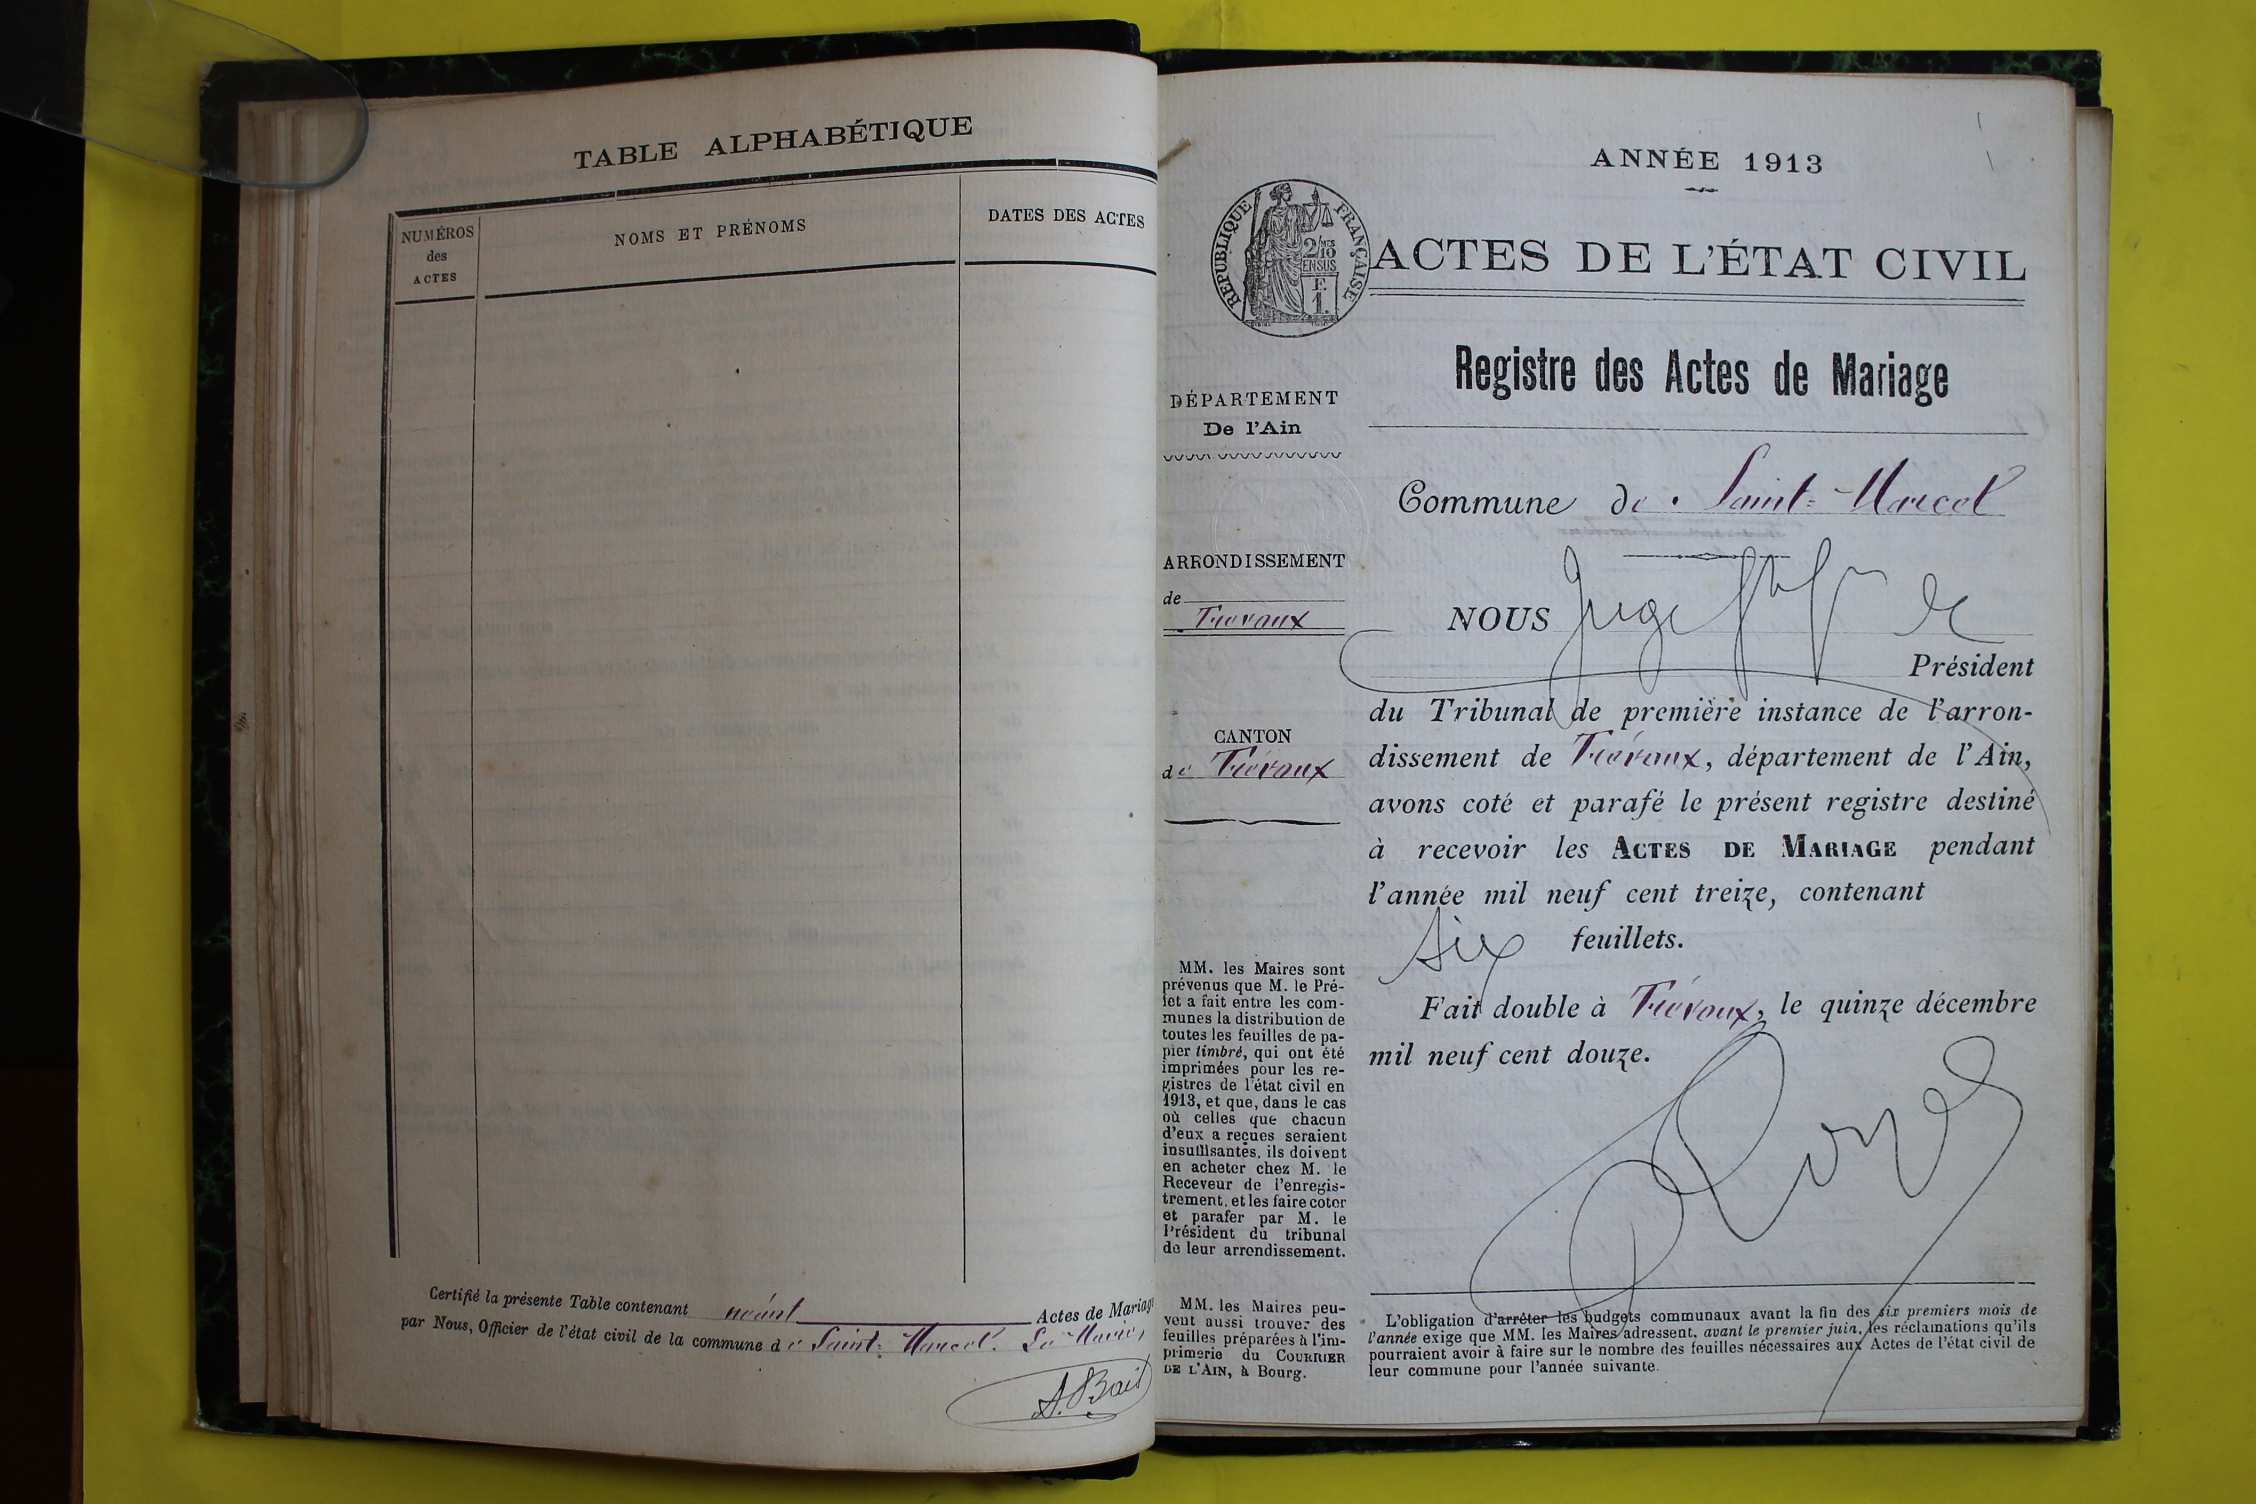 TABLE ALPHABÉTIQUE
NUMÉROS
des
ACTES
NOMS ET PRÉNOMS
DATES DES ACTES
Certifié la présente Table contenant néant Actes de Mariage
par Nous, Officier de l'état civil de la commune de Saint-Marcel. Le Maire,
A. Bail
ANNÉE 1913
RÉPUBLIQUE FRANÇAISE
2/10MES
EN SUS
F.
1.
ACTES DE L'ÉTAT CIVIL
Registre des Actes de Mariage
DÉPARTEMENT
De l'Ain
ARRONDISSEMENT
de
Trévoux
CANTON
de Trévoux
MM. les Maires sont
prévenus que M. le Pré-
fet a fait entre les com-
munes la distribution de
toutes les feuilles de pa-
pier timbré, qui ont été
imprimées pour les re-
gistres de l'état civil en
1913, et que, dans le cas
où celles que chacun
d'eux a reçues seraient
insuffisantes, ils doivent
en acheter chez M. le
Receveur de l'enregis-
trement, et les faire coter
et parafer par M. le
Président du tribunal
de leur arrondissement.
MM. les Maires peu-
vent aussi trouver des
feuilles préparées à l'im-
primerie du COURRIER
DE L'AIN, à Bourg.
Commune de Saint-Marcel
NOUS Juge
Président
du Tribunal de première instance de l'arron-
dissement de Trévoux, département de l'Ain,
avons coté et parafé le présent registre destiné
à recevoir les ACTES DE MARIAGE pendant
l'année mil neuf cent treize, contenant
six feuillets.
Fait double à Trévoux, le quinze décembre
mil neuf cent douze.
L'obligation d'arrêter les budgets communaux avant la fin des six premiers mois de
l'année exige que MM. les Maires adressent, avant le premier juin, les réclamations qu'ils
pourraient avoir à faire sur le nombre des feuilles nécessaires aux Actes de l'état civil de
leur commune pour l'année suivante.